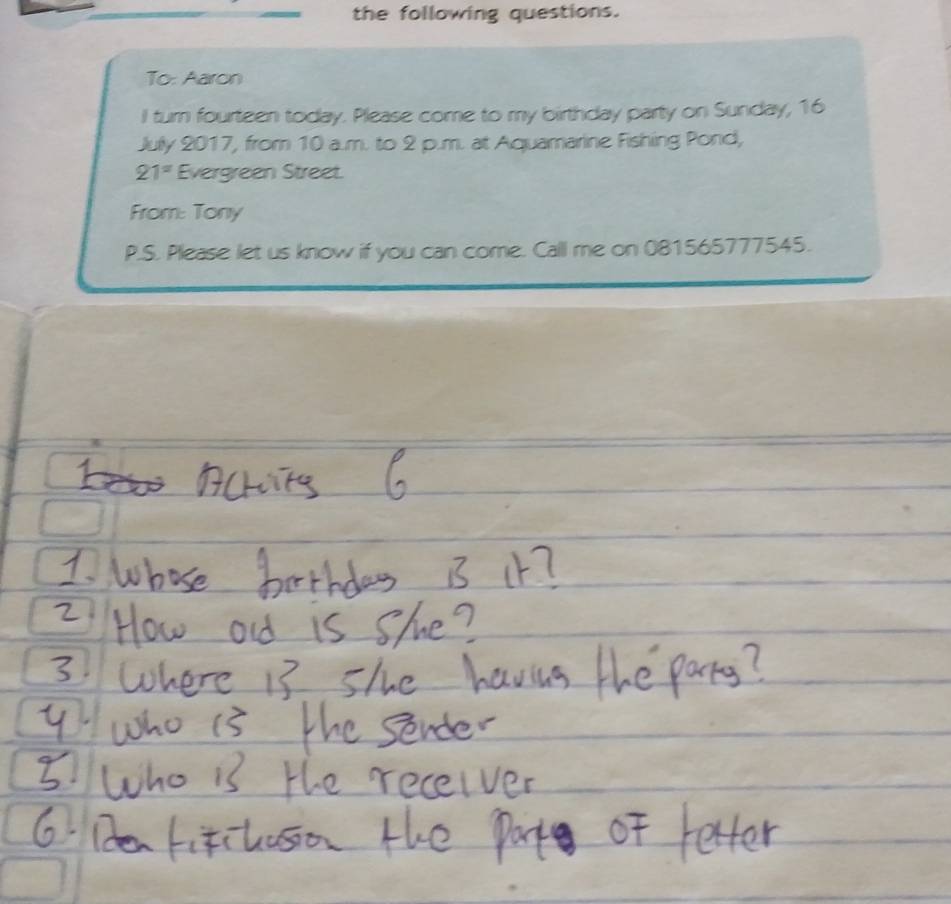 the following questions.
To: Aaron
I turn fourteen today. Please come to my birthday party on Sunday, 16
July 2017, from 10 a.m. to 2 p.m. at Aquamarine Fishing Pond,
21st Evergreen Street.
From: Tony
P.S. Please let us know if you can come. Call me on 081565777545.
Activity 6
1. Whose birthday is it?
2. How old is s/he?
3. Where is s/he having the party?
4. Who is the sender
5. Who is the receiver
6. the Parts of letter